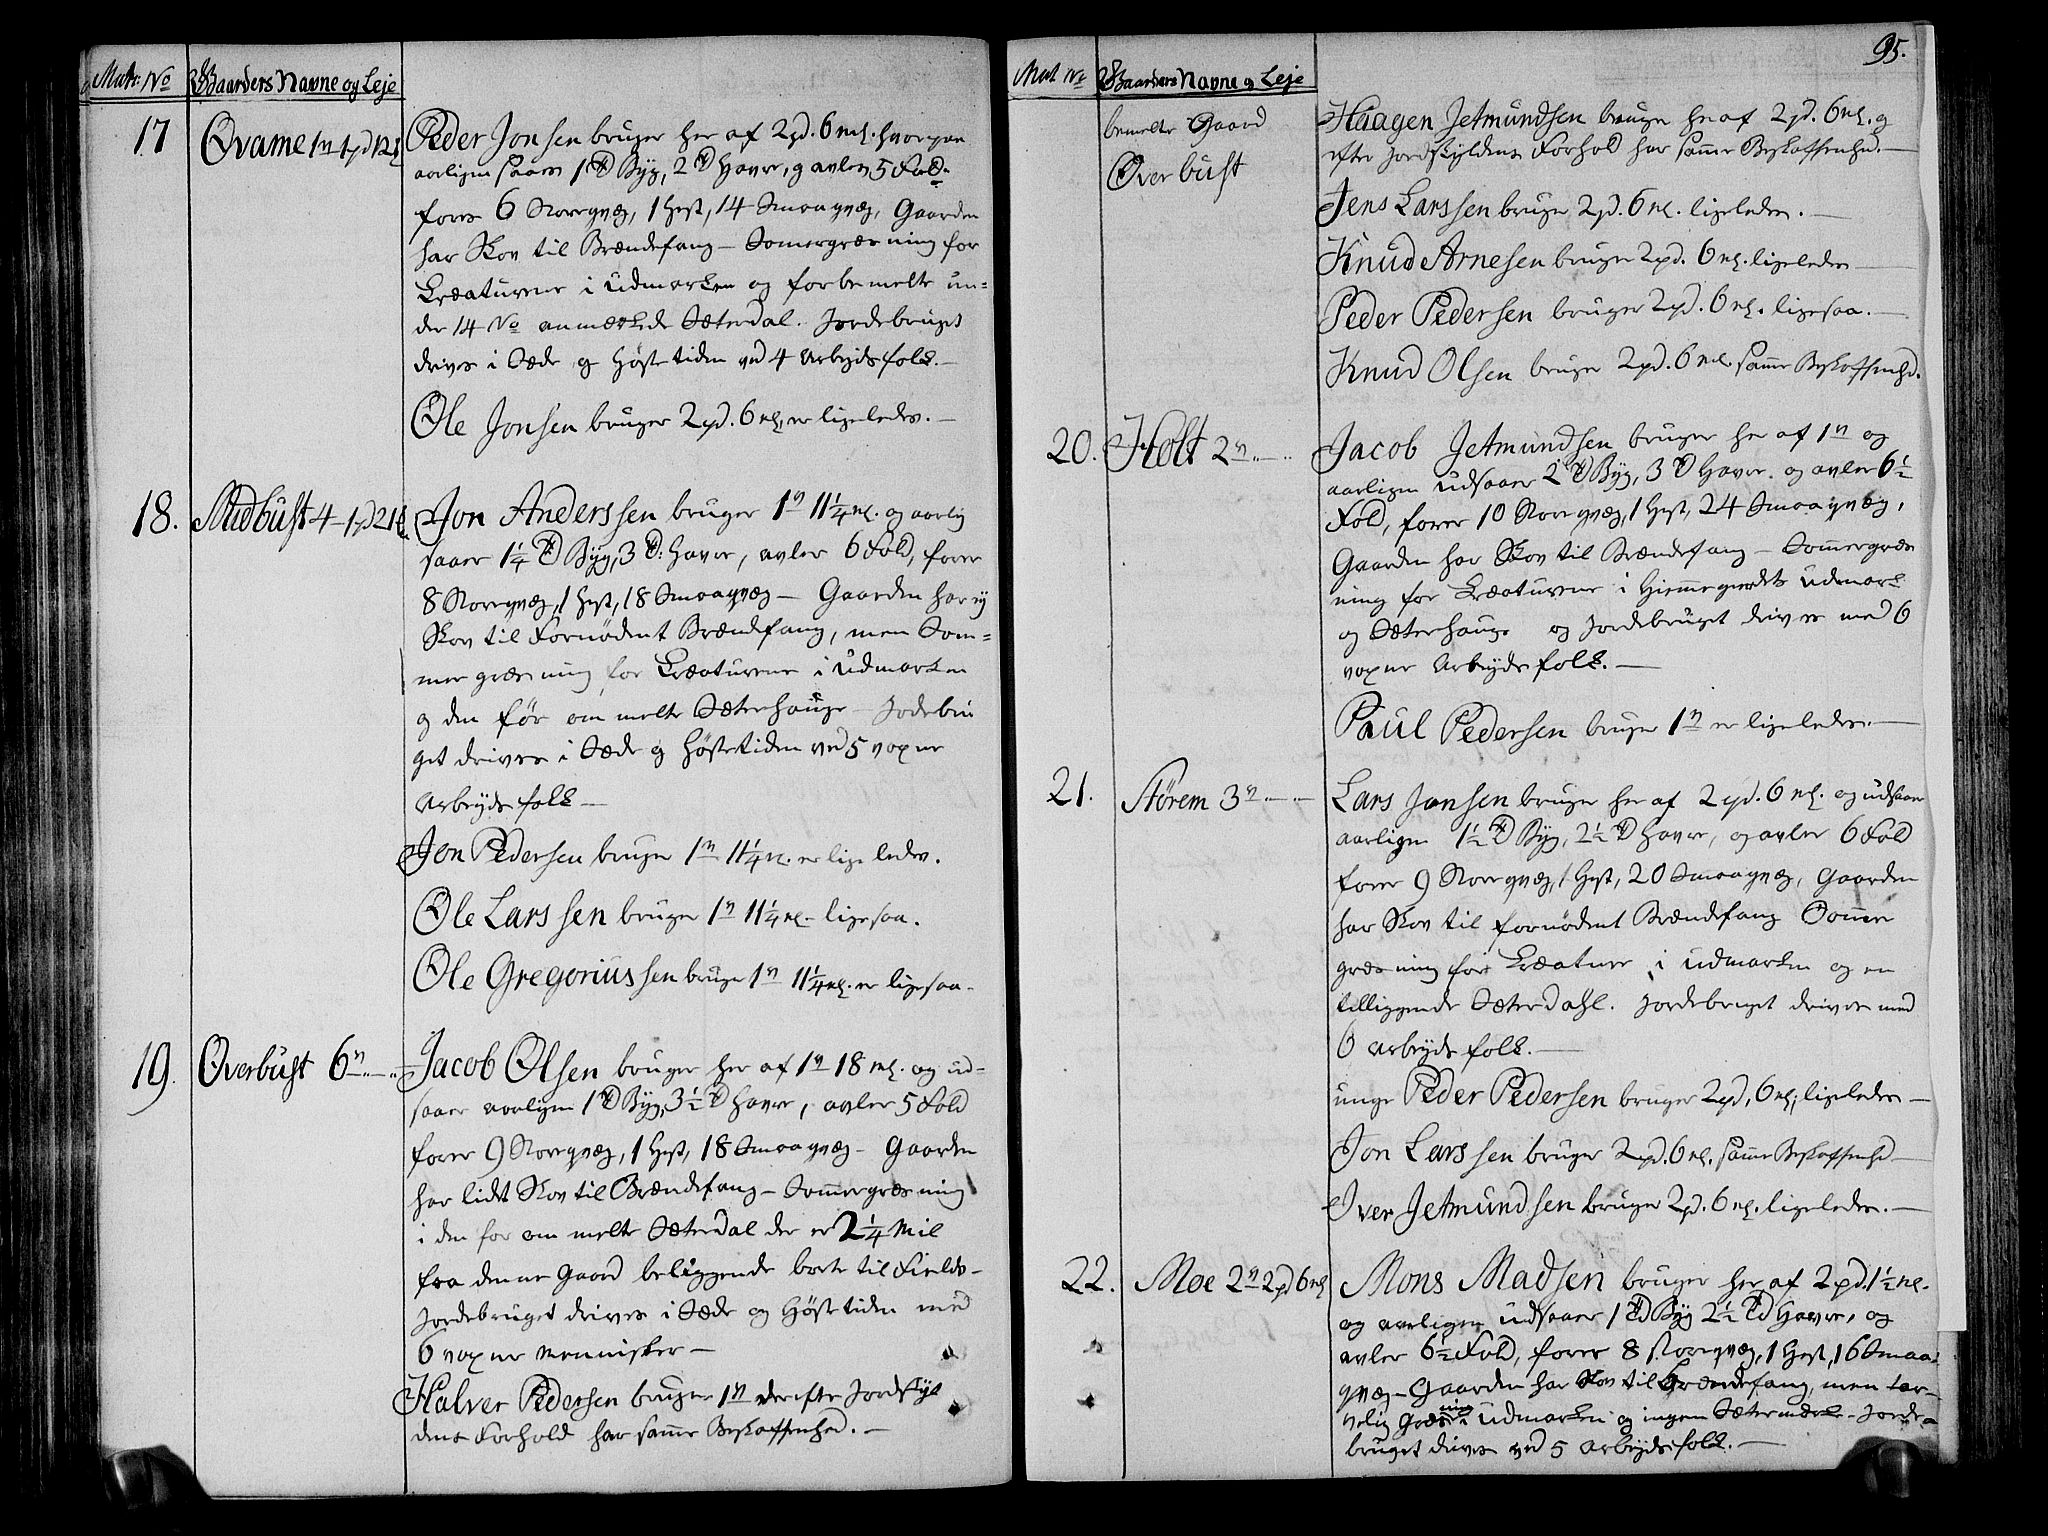 Matr: No
Gaarders Navne og Leje
17
Qvame 1n 1pd 12
Peder Jonsen bruger her af 2pd. 6 mk. hvorpaa
aarligen saaes 1 Td Byg, 2 Td Havre, og avler 5 Fold.
foder 6 Storeqvæg, 1 Hest, 14 Smaaqvæg, Gaarden
har Skov til Brændefang – Somergræsning for
Creaturene i Udmarken og forbemelte un-
der 14 No anmærkede Sæterdal. Jordebruget
drives i Sæde og Høstetiden ved 4 Arbejdsfolk. –
Ole Jonsen bruger 2pd. 6 mk, er ligeledes. –
18.
Midbust 4 – 1pd 21
Jon Anderssen bruger 1n 11 1/4 mk. og aarlig
saaer 1 1/4 Td Byg, 3 Td: Havre, avler 6 Fold, foder
8 Storeqvæg, 1 Hest, 18 Smaaqvæg – Gaarden har ej
Skov til Fornødent Brændefang, men Som-
mergræsning for Creaturene i Udmarken
og den før ommelte Sæterhauge – Jordebru
get drives i Sæde og Høstetiden ved 5 voxne
Arbejdsfolk –
Jon Pedersen bruger 1n 11 1/4 mk. er ligeledes.
Ole Larssen bruger 1n 11 1/4 mk – ligesaa.
Ole Gregoriussen bruger 1n 11 1/4 mk. er ligesaa.
19.
Overbust 6n
Jacob Olsen bruger her af 1n 18 mk. og ud-
saaer aarligen 1 Td Byg, 3 1/2 Td Havre, avler 5 Fold
foder 9 Storeqvæg, 1 Hest, 18 Smaaqvæg – Gaarden
har lidt Skov til Brændefang – Sommergræsning
i den for ommelte Sæterdal der er 2 1/4 Mil
fra denne Gaard beliggende borte til Fields –
Jordebruget drives i Sæde og Høstetiden med
6 voxne Mennisker –
Halver Pedersen bruger 1n der efter Jordskyl
dens Forhold har samme Beskaffenhed. –
95.
Mat No
Gaarders Navne og Leje
bemelte Gaard
Overbust
Haagen Jetmundsen bruger her af 2pd. 6 mk. og
efter Jordskyldens Forhold har samme Beskaffenhed. –
Jens Larssen bruger 2pd. 6 mk. ligeledes. –
Knud Arnesen bruger 2pd. 6 mk. ligeledes –
Peder Pedersen bruger 2pd. 6 mk. ligesaa. –
Knud Olsen bruger 2pd. 6 mk samme Beskaffenhed.
20.
Holt 2n
Jacob Jetmundsen bruger her af 1n og
aarligen udsaaer 2 Td Byg, 3 Td Havre. og avler 6 1/2
Fold, foder 10 Storeqvæg, 1 Hest, 24 Smaaqvæg,
Gaarden har Skov til Brændefang – Sommergræs
ning for Creaturene i Hiemmegierdets Udmark
og Sæterhauge og Jordebruget drives med 6
voxne Arbejdsfolk. –
Paul Pedersen bruger 1n er ligeledes. –
21.
Størem 3n
Lars Jonsen bruger her af 2pd. 6 mk. og udsaaer
aarligen 1 1/2 Td Byg, 2 1/2 Td Havre, og avler 6 Fold
foder 9 Storeqvæg, 1 Hest, 20 Smaaqvæg, Gaarden
har Skov til fornødent Brændefang Sommer
græsning for Creature i Udmarken og en
tilliggende Sæterdahl. Jordebruget drives med
6 Arbejdsfolk. –
unge Peder Pedersen bruger 2pd, 6 mk; ligeledes –
Jon Larssen bruger 2pd. 6 mk. samme Beskaffenhed –
Iver Jetmundsen bruger 2pd. 6 mk. ligeledes. –
22.
Moe 2n 2pd 6 mk
Mons Madsen bruger her af 2pd. 1 1/2 mk.
og aarligen udsaaer 1 Td Byg 2 1/2 Td Havre, og
avler 6 1/2 Fold, foder 8 Storeqvæg, 1 Hest, 16 Smaa-
qvæg – Gaarden har Skov til Brændefang, men tar-
velig Græsning i Udmarken og ingen Sætermark – Jorde-
bruget drives ved 5 Arbejdsfolk. –